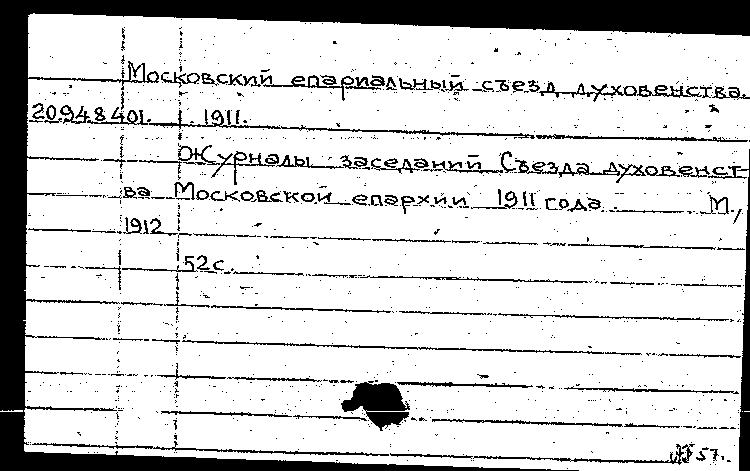 Московский епархиальный съезд духовенства.
20948401. 1911.
Журналы заседаний Съезда духовенст-
ва Московской епархии 1911 года. М.,
1912
52 с.
57.